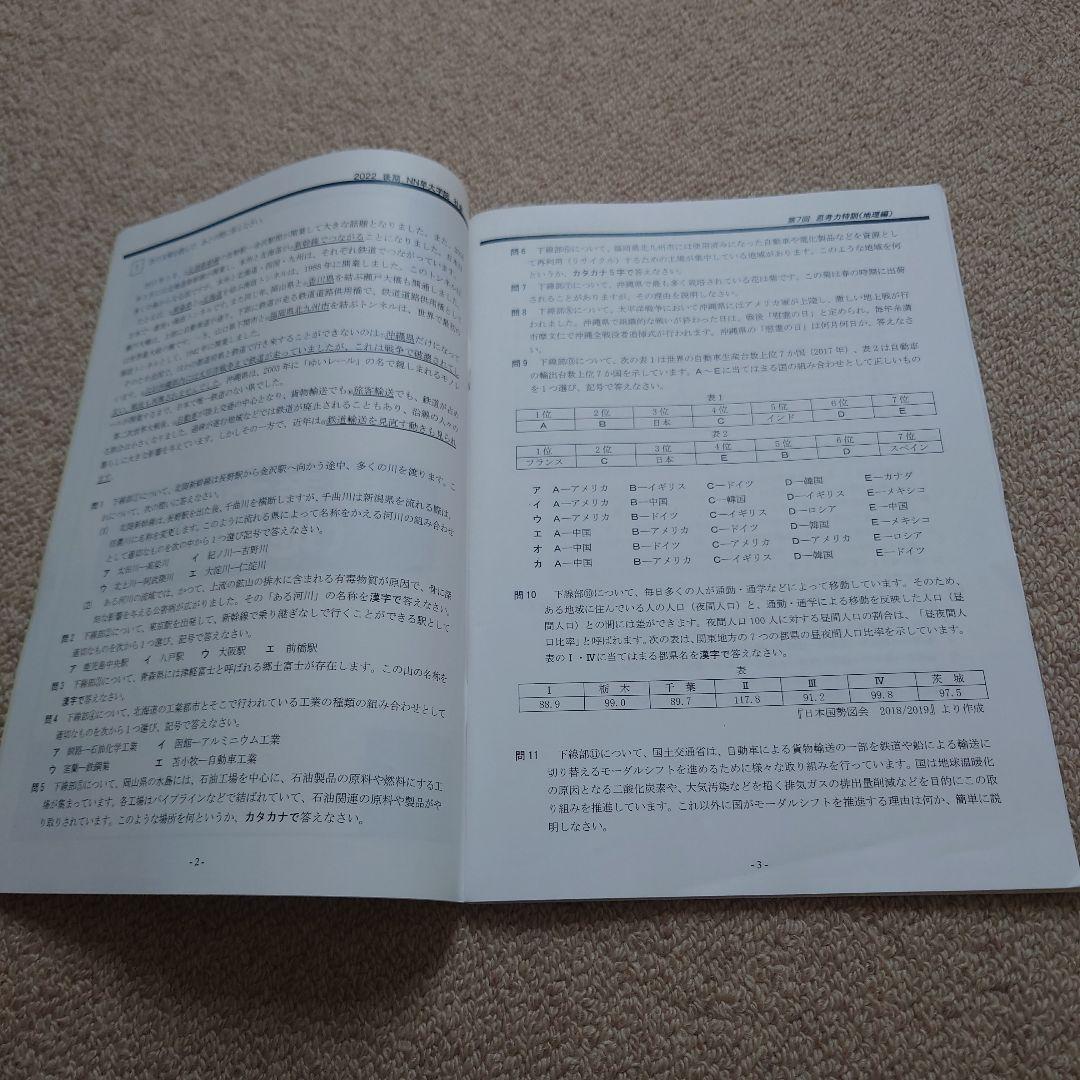 2022 後期 NN早大学院 社会
1
北陸新幹線の長野－金沢駅間が開業して大きな話題となりました。また、
新幹線でつながることになりました。
それぞれ鉄道でつながっています。
1988年に開業しました。このトンネルが
香川県を結ぶ瀬戸大橋も開通しました。
福岡県北九州市を結ぶトンネルは、世界で最初の
鉄道で行き来することができないのは、沖縄県だけになって
これは戦争で破壊されて
沖縄県は、2003年に「ゆいレール」の名で親しまれるモノレ
ールが開業するまで、日本で唯一鉄道のない県でした。
陸上交通の中心となり、貨物輸送でも旅客輸送でも、鉄道が占め
鉄道が廃止されることもあり、沿線の人々の
暮らしに大きな影響を与えています。しかしその一方で、近年は鉄道輸送を見直す動きも見られ
ます。
問1 下線部①について、北陸新幹線は長野駅から金沢駅へ向かう途中、多くの川を渡ります。こ
れについて、次の問いに答えなさい。
(1) 北陸新幹線は、長野駅を出た後、千曲川を横断しますが、千曲川は新潟県を流れる際は、
信濃川に名称を変更します。このように流れる県によって名称をかえる河川の組み合わせ
として適切なものを次の中から1つ選び記号で答えなさい。
ア 太田川―高梁川 イ 紀ノ川―吉野川
ウ 北上川―阿武隈川 エ 大淀川―仁淀川
(2) ある河川の流域では、かつて、上流の鉱山の排水に含まれる有毒物質が原因で、骨に深
刻な影響を与える公害病が広がりました。その「ある河川」の名称を漢字で答えなさい。
問2 下線部②について、東京駅を出発して、新幹線で乗り継ぎなしで行くことができる駅として
適切なものを次から1つ選び、記号で答えなさい。
ア 鹿児島中央駅 イ 八戸駅 ウ 大阪駅 エ 前橋駅
問3 下線部③について、青森県には津軽富士と呼ばれる郷土富士が存在します。この山の名称を
漢字で答えなさい。
問4 下線部④について、北海道の工業都市とそこで行われている工業の種類の組み合わせとして
適切なものを次から1つ選び、記号で答えなさい。
ア 釧路―石油化学工業 イ 函館―アルミニウム工業
ウ 室蘭―鉄鋼業 エ 苫小牧―自動車工業
問5 下線部⑤について、岡山県の水島には、石油工場を中心に、石油製品の原料や燃料にする工
場が集まっています。各工場はパイプラインなどで結ばれていて、石油関連の原料や製品がや
り取りされています。このような場所を何というか、カタカナで答えなさい。
- 2 -
第7回 思考力特訓(地理編)
問6 下線部⑥について、福岡県北九州市には使用済みになった自動車や電化製品などを資源とし
て再利用(リサイクル)するための工場が集中している地域があります。このような地域を何
というか、カタカナ5字で答えなさい。
問7 下線部⑦について、沖縄県で最も多く栽培されている花は菊です。この菊は春の時期に出荷
されることがありますが、その理由を説明しなさい。
問8 下線部⑧について、太平洋戦争において沖縄県にはアメリカ軍が上陸し、激しい地上戦が行
われました。沖縄県で組織的な戦いが終わった日は、戦後「慰霊の日」と定められ、毎年糸満
市摩文仁で沖縄全戦没者追悼式が行われます。沖縄県の「慰霊の日」は何月何日か、答えなさ
い。
問9 下線部⑨について、次の表1は世界の自動車生産台数上位7か国(2017年)、表2は自動車
の輸出台数上位7か国を示しています。A～Eに当てはまる国の組み合わせとして正しいもの
を1つ選び、記号で答えなさい。
表1
1位 2位 3位 4位 5位 6位 7位
A B 日本 C インド D E
表2
1位 2位 3位 4位 5位 6位 7位
フランス C 日本 E B D スペイン
ア A―アメリカ B―イギリス C―ドイツ D―韓国 E―カナダ
イ A―アメリカ B―中国 C―韓国 D―イギリス E―メキシコ
ウ A―アメリカ B―ドイツ C―イギリス D―ロシア E―中国
エ A―中国 B―アメリカ C―ドイツ D―韓国 E―メキシコ
オ A―中国 B―ドイツ C―アメリカ D―アメリカ E―ロシア
カ A―中国 B―アメリカ C―イギリス D―韓国 E―ドイツ
問10 下線部⑩について、毎日多くの人が通勤・通学などによって移動しています。そのため、
ある地域に住んでいる人の人口(夜間人口)と、通勤・通学による移動を反映した人口(昼
間人口)との間には差ができます。夜間人口100人に対する昼間人口の割合は、「昼夜間人
口比率」と呼ばれます。次の表は、関東地方の7つの都県の昼夜間人口比率を示しています。
表のⅠ・Ⅳに当てはまる都県名を漢字で答えなさい。
表
Ⅰ 栃木 千葉 Ⅱ Ⅲ Ⅳ 茨城
88.9 99.0 89.7 117.8 91.2 99.8 97.5
『日本国勢図会 2018/2019』より作成
問11 下線部⑪について、国土交通省は、自動車による貨物輸送の一部を鉄道や船による輸送に
切り替えるモーダルシフトを進めるために様々な取り組みを行っています。国は地球温暖化
の原因となる二酸化炭素や、大気汚染などを招く排気ガスの排出量削減などを目的にこの取
り組みを推進しています。これ以外に国がモーダルシフトを推進する理由は何か、簡単に説
明しなさい。
- 3 -